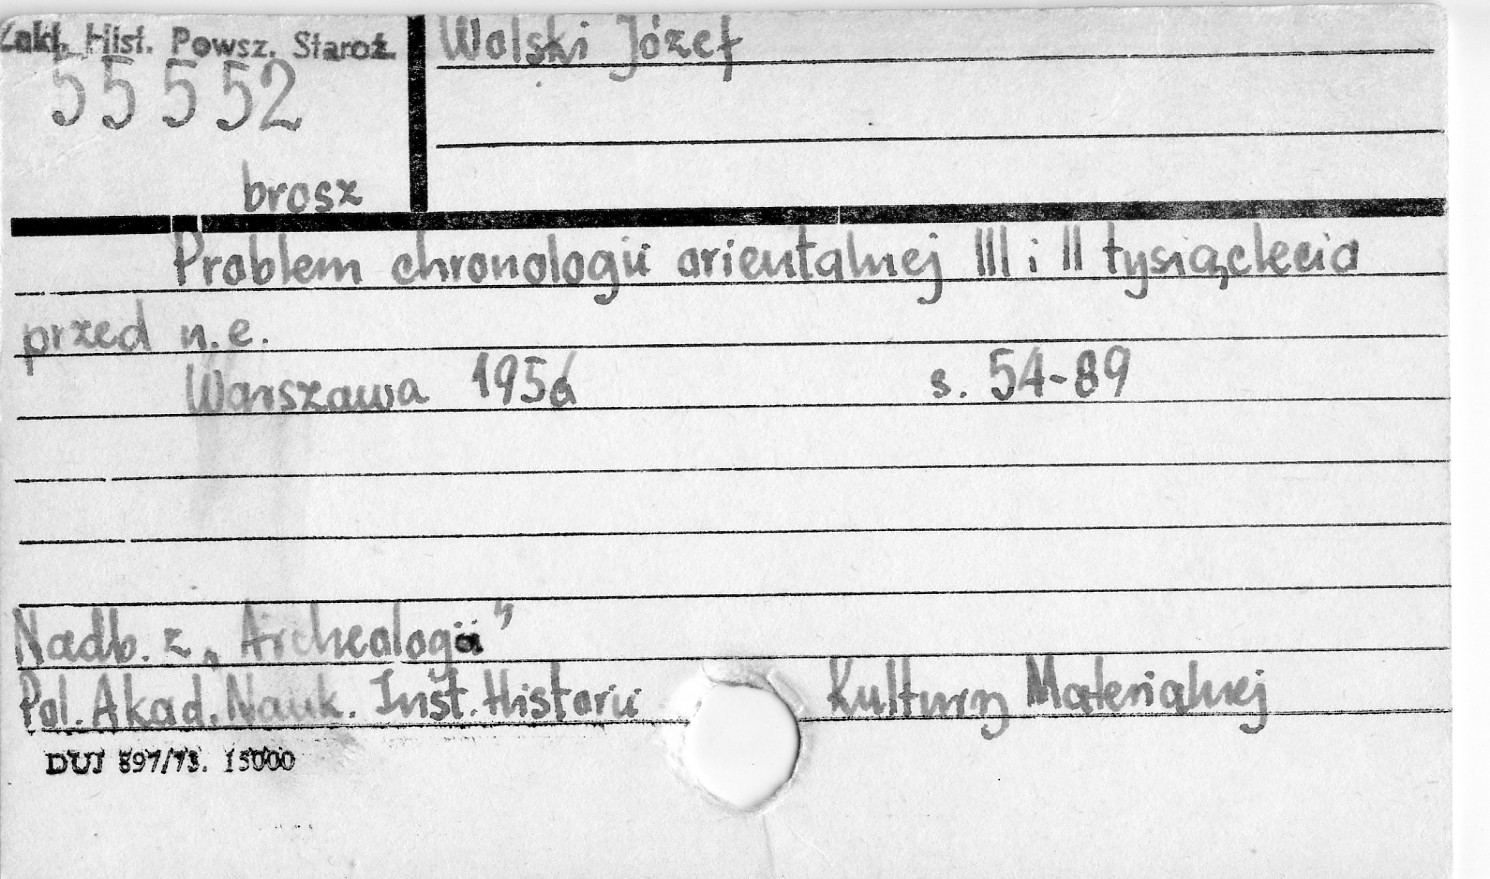 Zakł. Hist. Powsz. Staroż.
55552
brosz
Wolski Józef
Problem chronologii orientalnej III i II tysiąclecia
przed n.e.
Warszawa 1956 s. 54-89
Nadb. z „Archeologii"
Pol. Akad. Nauk. Inst. Historii Kultury Materialnej
DUJ 897/73. 15000